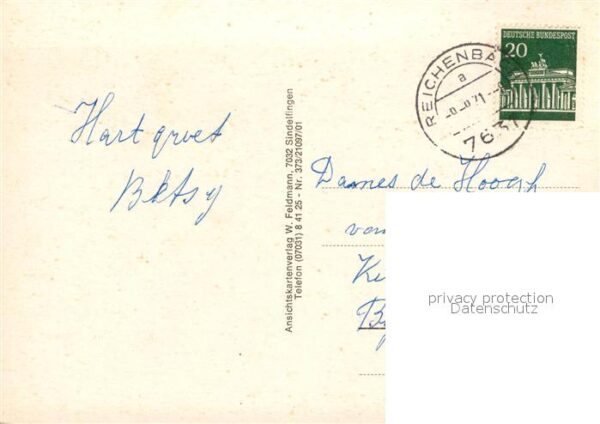 Hart groet
Betsy
Ansichtskartenverlag W. Feldmann, 7032 Sindelfingen
Telefon (07031) 8 41 25 - Nr. 373/21097/01
REICHENBA
a
71
7631
DEUTSCHE BUNDESPOST
20
Dames de Hoogh
van
privacy protection
Datenschutz